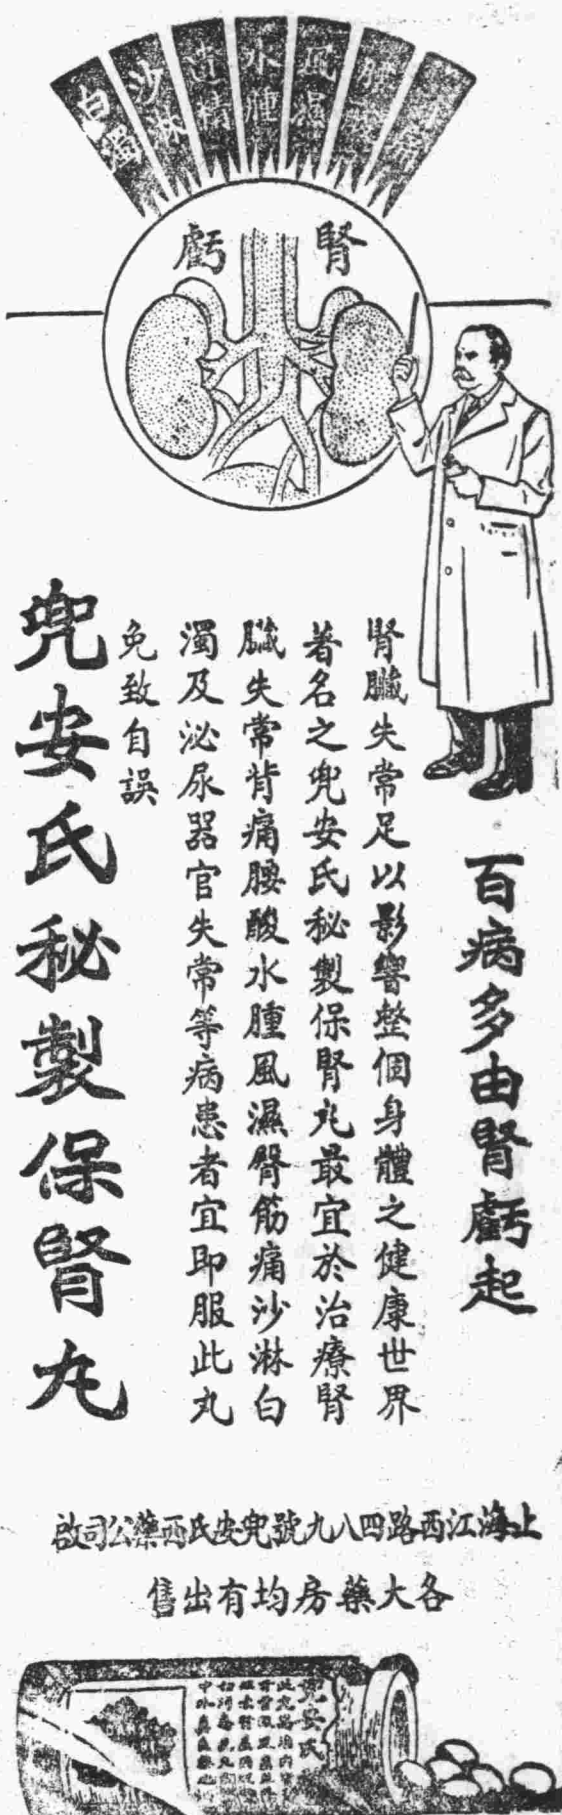 白濁
沙淋
遺精
水腫
風濕
腰酸
腎虧
百病多由腎虧起
腎臟失常足以影響整個身體之健康世界
著名之兜安氏秘製保腎丸最宜於治療腎
臟失常背痛腰酸水腫風濕臀筋痛沙淋白
濁及泌尿器官失常等病患者宜即服此丸
免致自誤
兜安氏秘製保腎丸
上海江西路四八九號兜安氏西藥公司啟
各大藥房均有出售
兜安氏